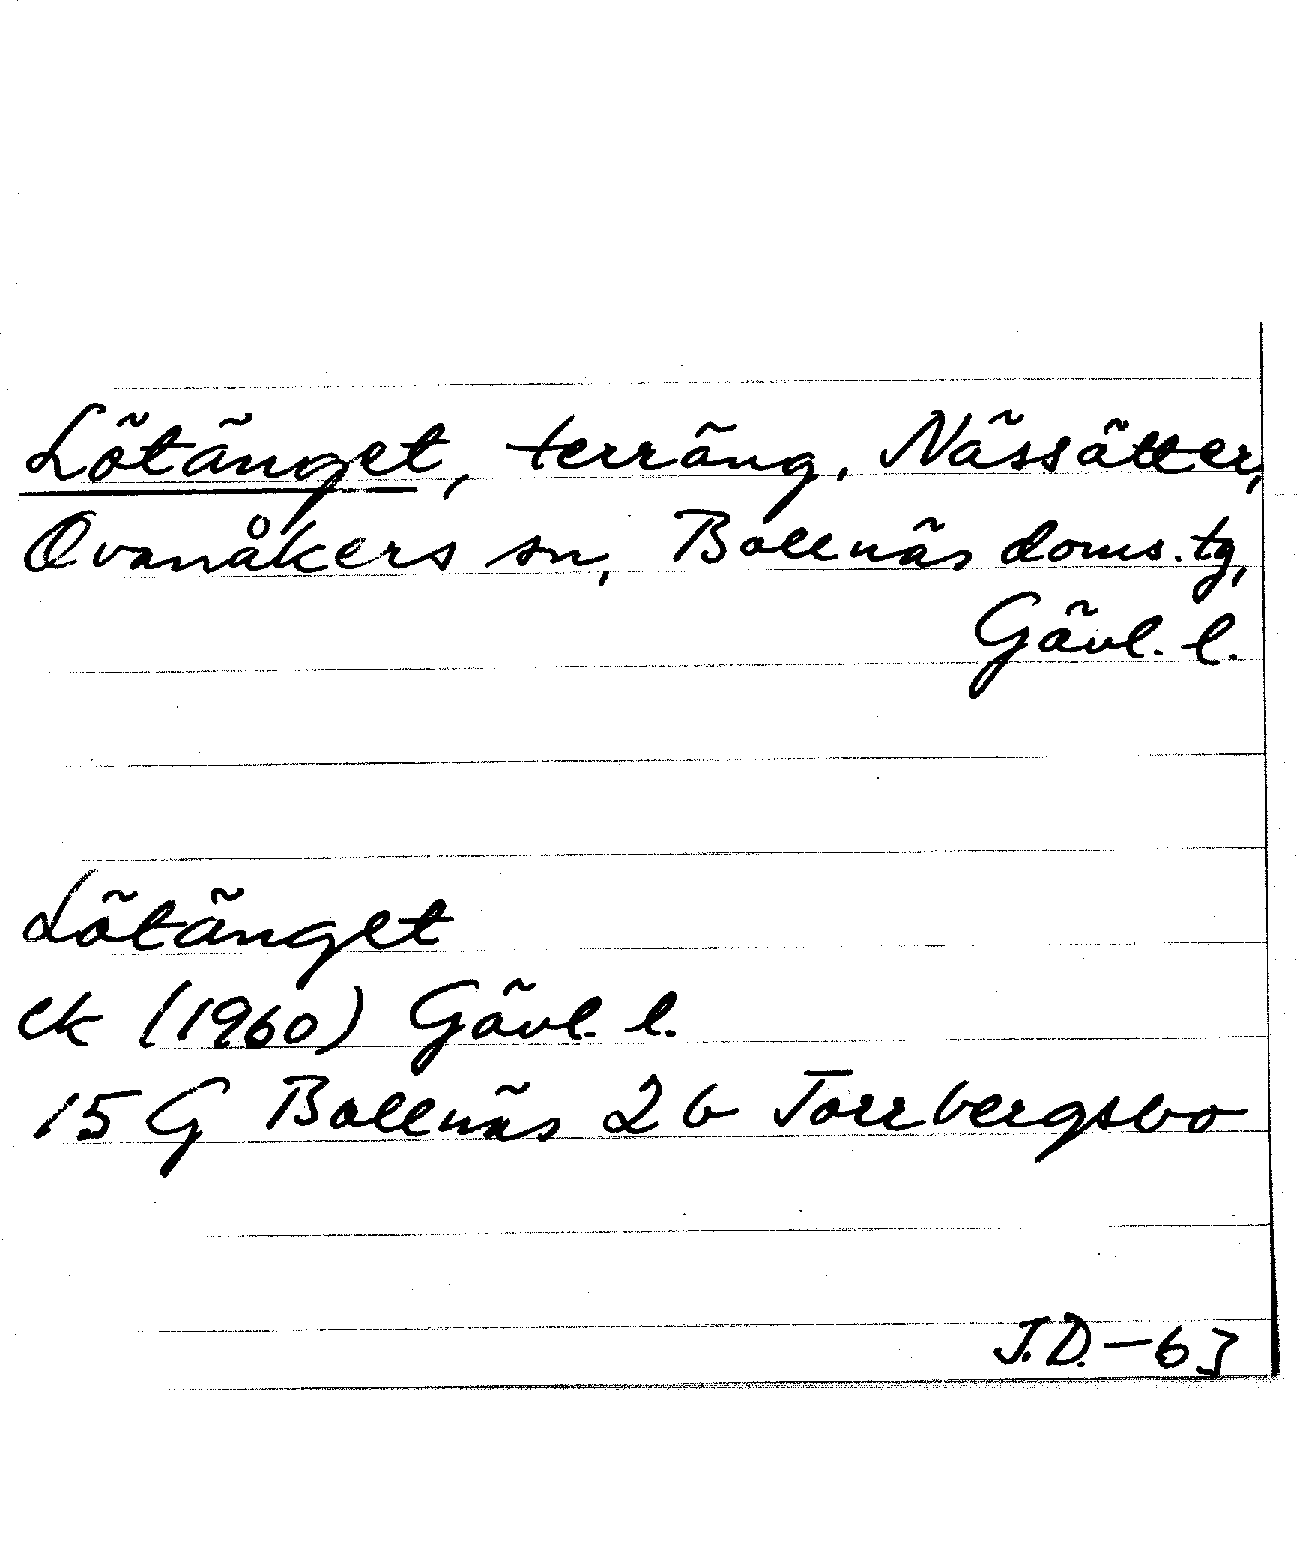 Lötänget, terräng, Nässätter,
Ovanåkers sn, Bollnäs doms. tg,
Gävl. l.
Lötänget
ek (1960) Gävl. l.
15 G Bollnäs 2b Torrbergsbo
J.D. - 63